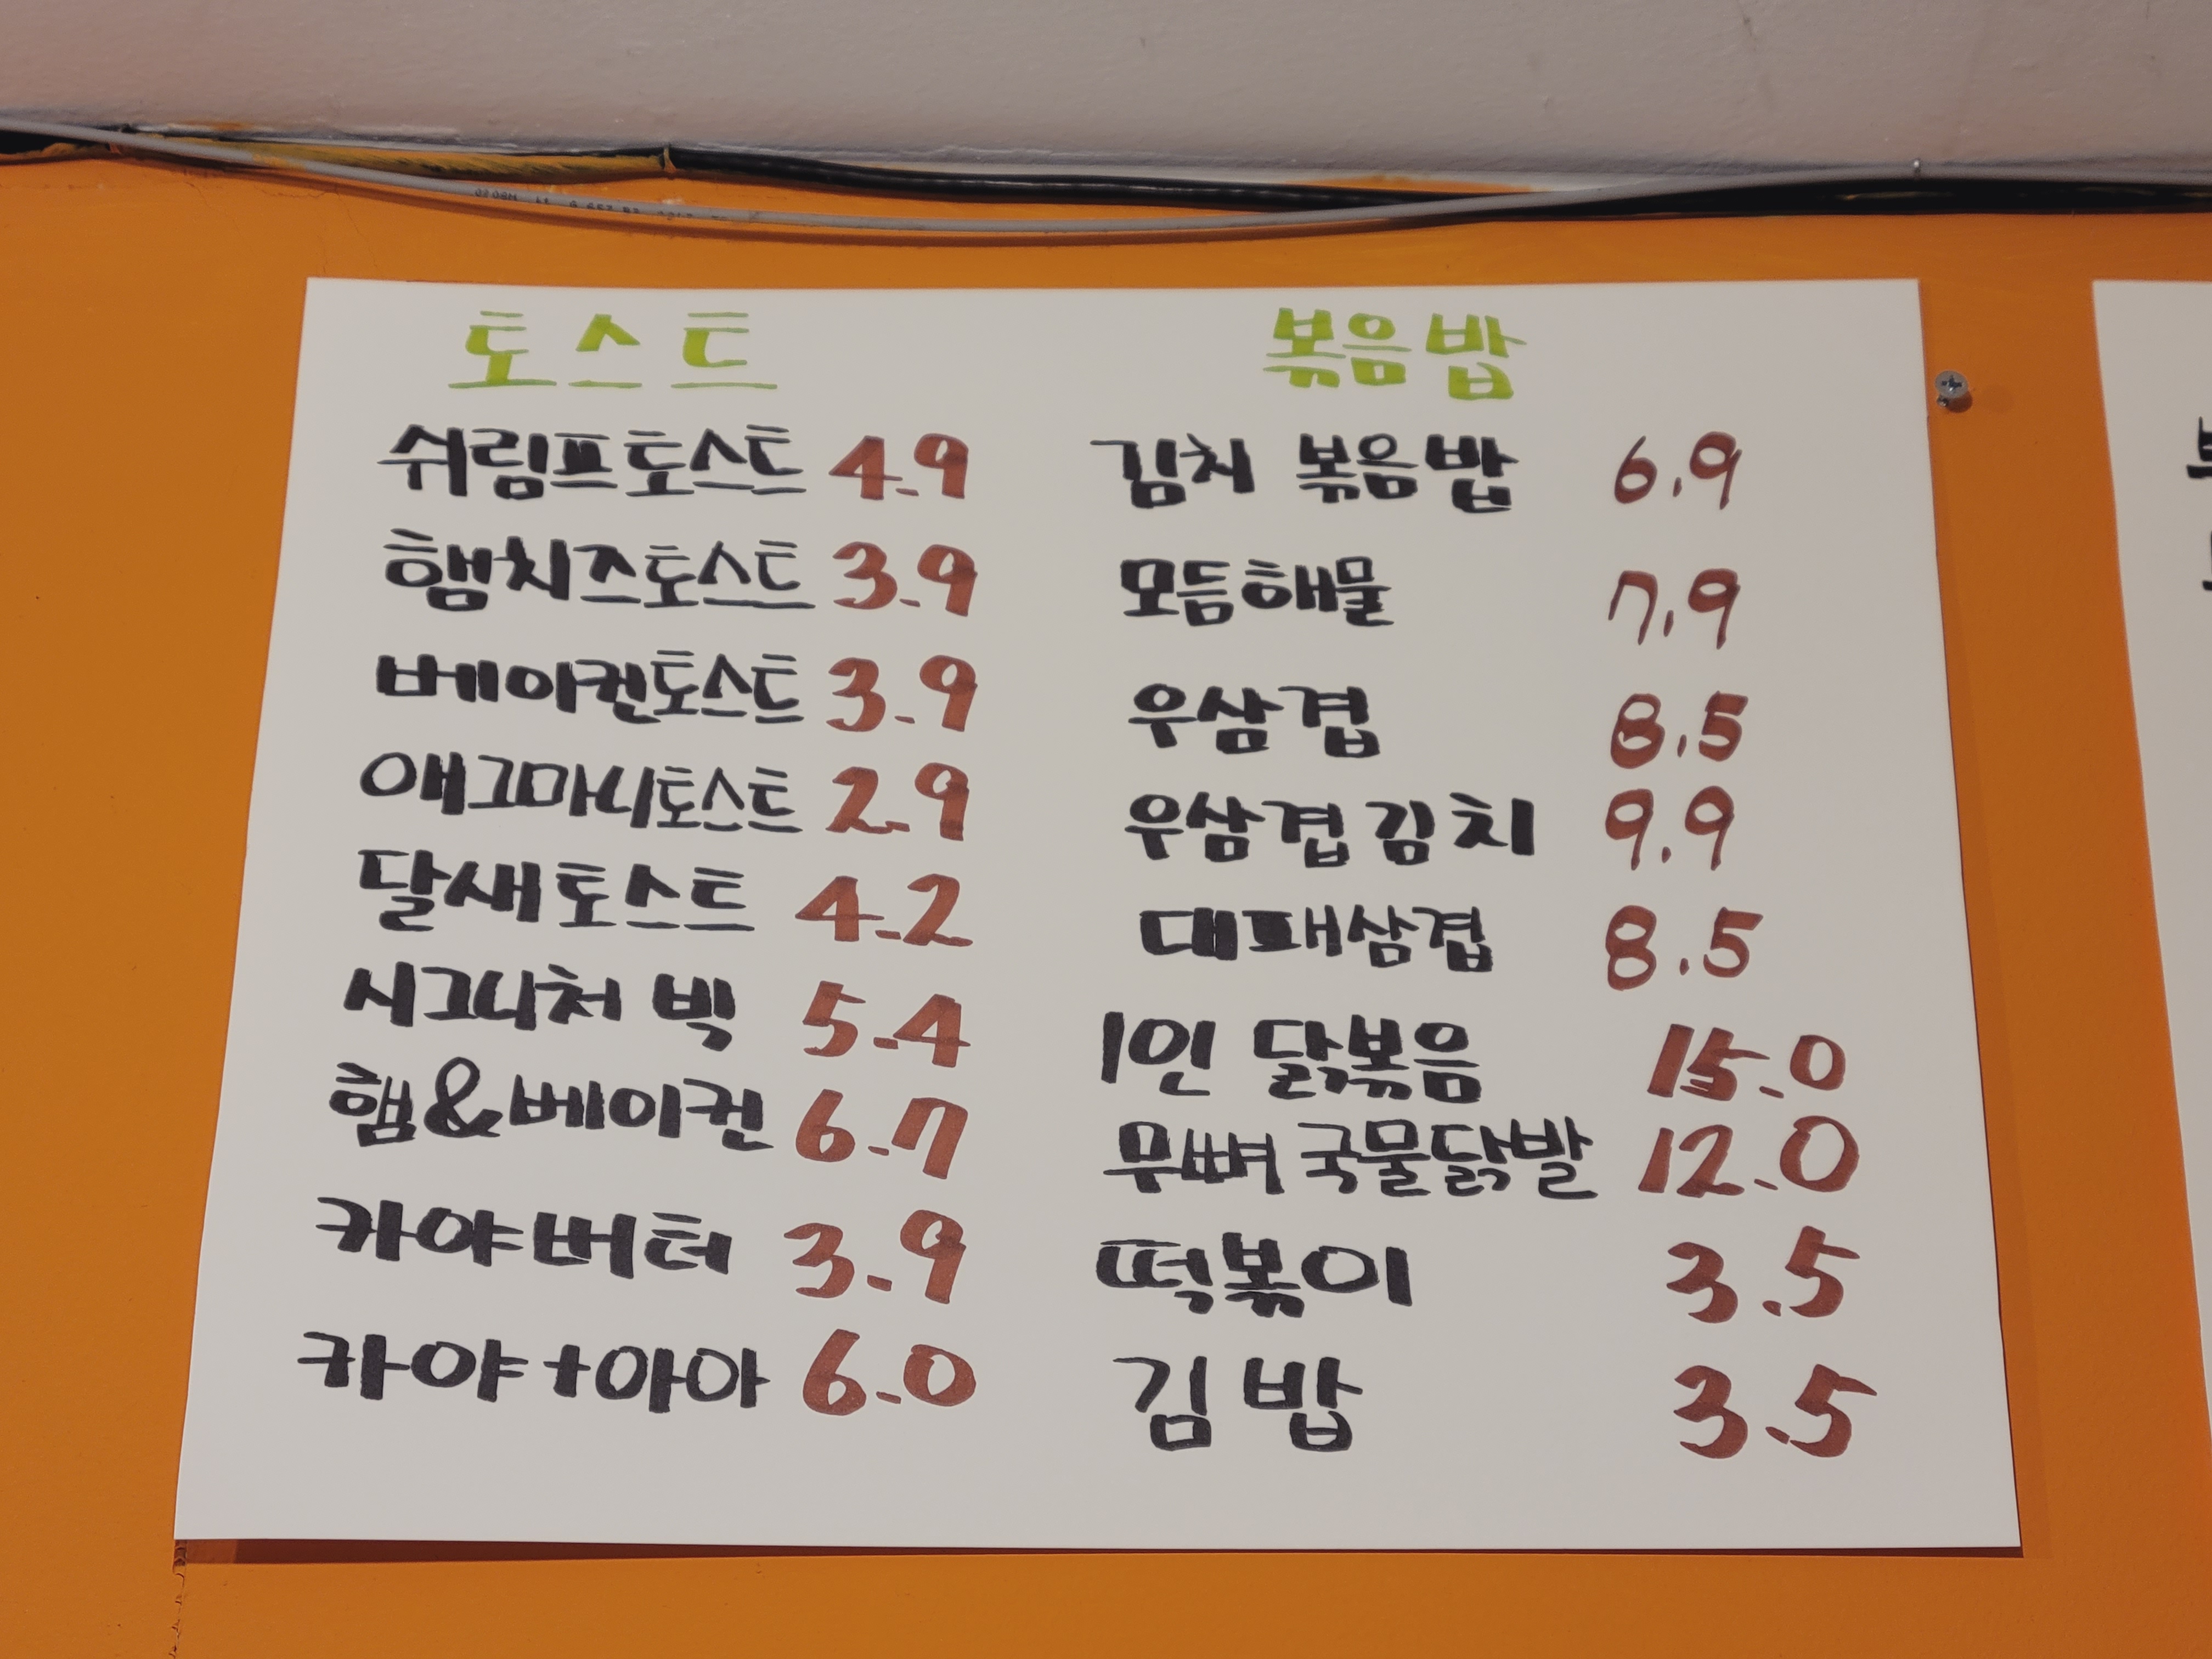 토스트
쉬림프토스트 4.9
햄치즈토스트 3.9
베이컨토스트 3.9
애그마니토스트 2.9
달새토스트 4.2
시그니처 빅 5.4
햄&베이컨 6.7
카야버터 3.9
카야+아아 6.0
볶음밥
김치 볶음밥 6.9
모듬해물 7.9
우삼겹 8.5
우삼겹김치 9.9
대패삼겹 8.5
1인 닭볶음 15.0
무뼈 국물닭발 12.0
떡볶이 3.5
김밥 3.5